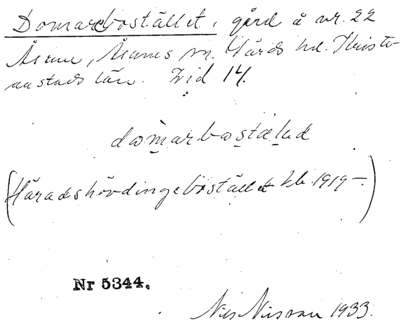 Domarbostället, gård å nr. 22
Åsum, Åsums sn. Gärds hd. Kristi-
anstads län. Z id 14.
domarbostälad
(Häradshövdingebostället Jb. 1919–)
Nr 5344.
Nils Nilsson 1933.